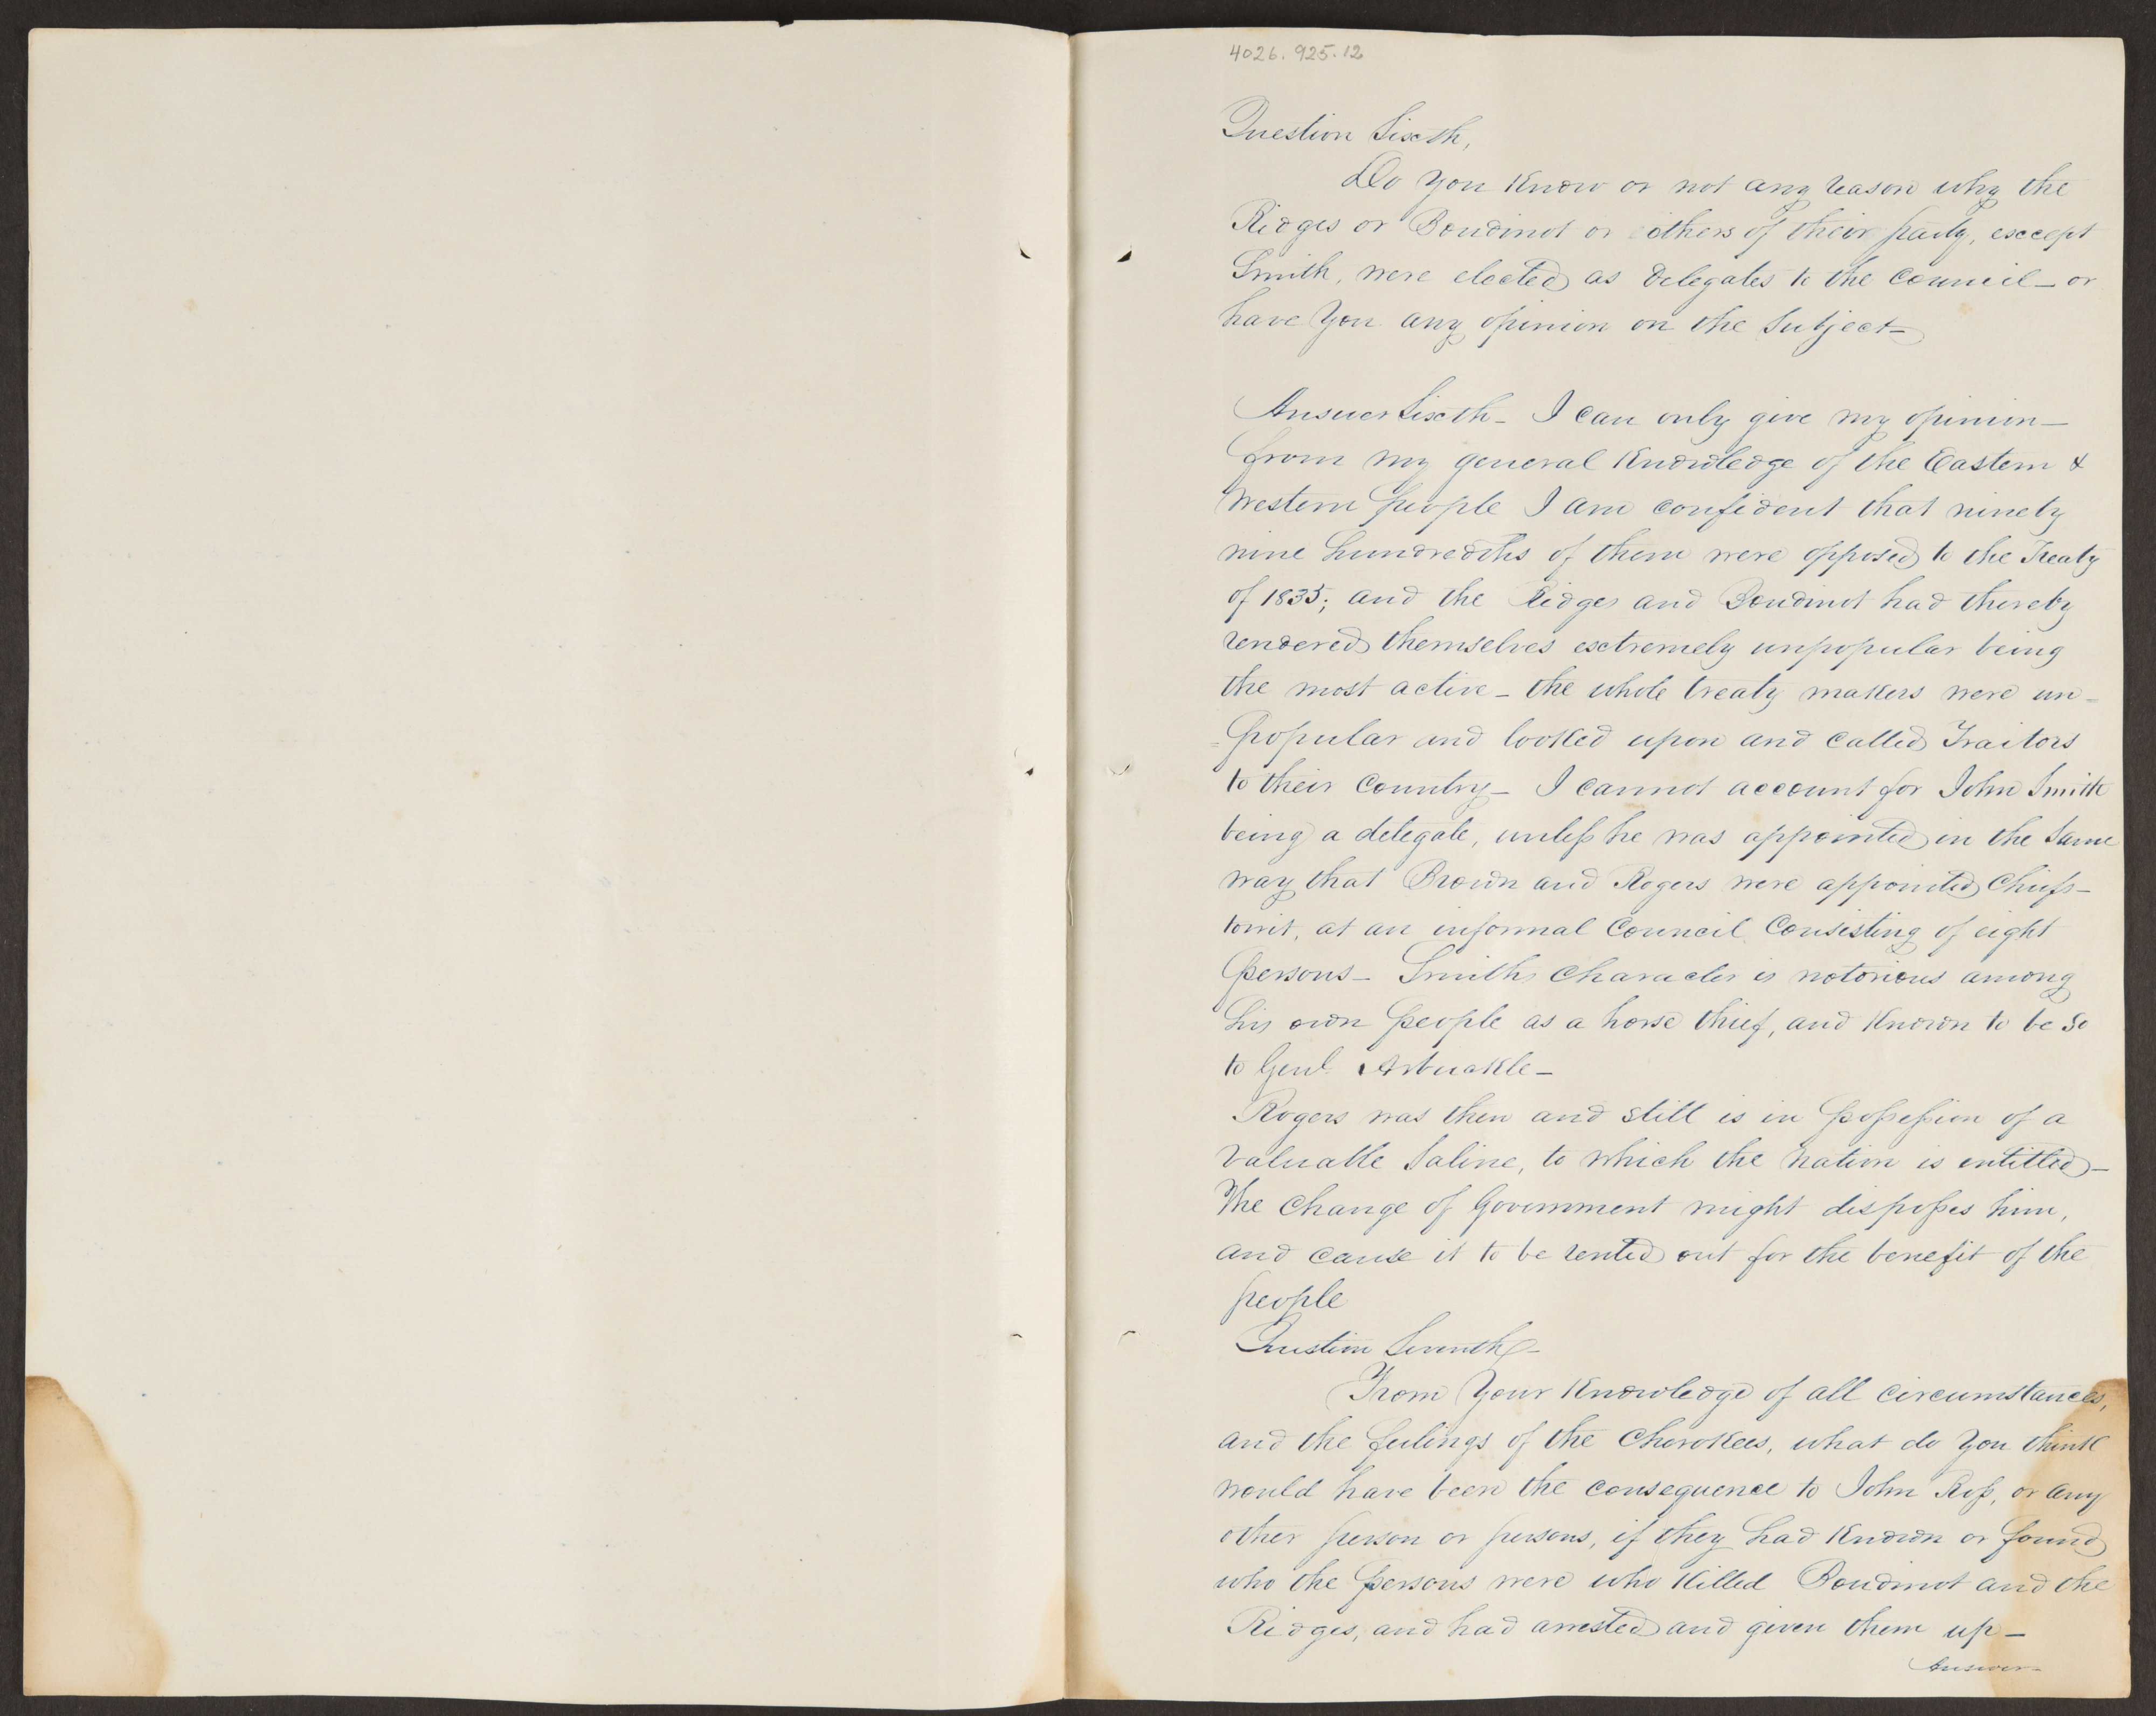 4026.925.12
Question Sixth,
Do you Know or not any reason why the
Ridges or Boudinot or others of their party, except
Smith, were elected as delegates to the Council — or
have you any opinion on the Subject —
Answer Sixth — I can only give my opinion —
from my general Knowledge of the Eastern &
Western people I am confident that ninety
nine hundredths of them were opposed to the Treaty
of 1835; and the Ridges and Boudinot had thereby
rendered themselves extremely unpopular being
the most active — the whole treaty makers were un-
=popular and looked upon and called Traitors
to their Country — I cannot account for John Smith
being a delegate, unless he was appointed in the Same
way that Brown and Rogers were appointed Chiefs —
towit, at an informal Council Consisting of eight
persons — Smiths Character is notorious among
his own people as a horse thief, and Known to be so
to Genl. Arbuckle —
Rogers was then and still is in possession of a
valuable Saline, to which the nation is entitled —
The Change of Government might disposses him,
and cause it to be rented out for the benefit of the
people
Question Seventh —
From Your Knowledge of all circumstances,
and the feelings of the Cherokees, what do You think
would have been the consequence to John Ross, or any
other person or persons, if they had Known or found
who the persons were who Killed Boudinot and the
Ridges, and had arrested and given them up —
Answer —